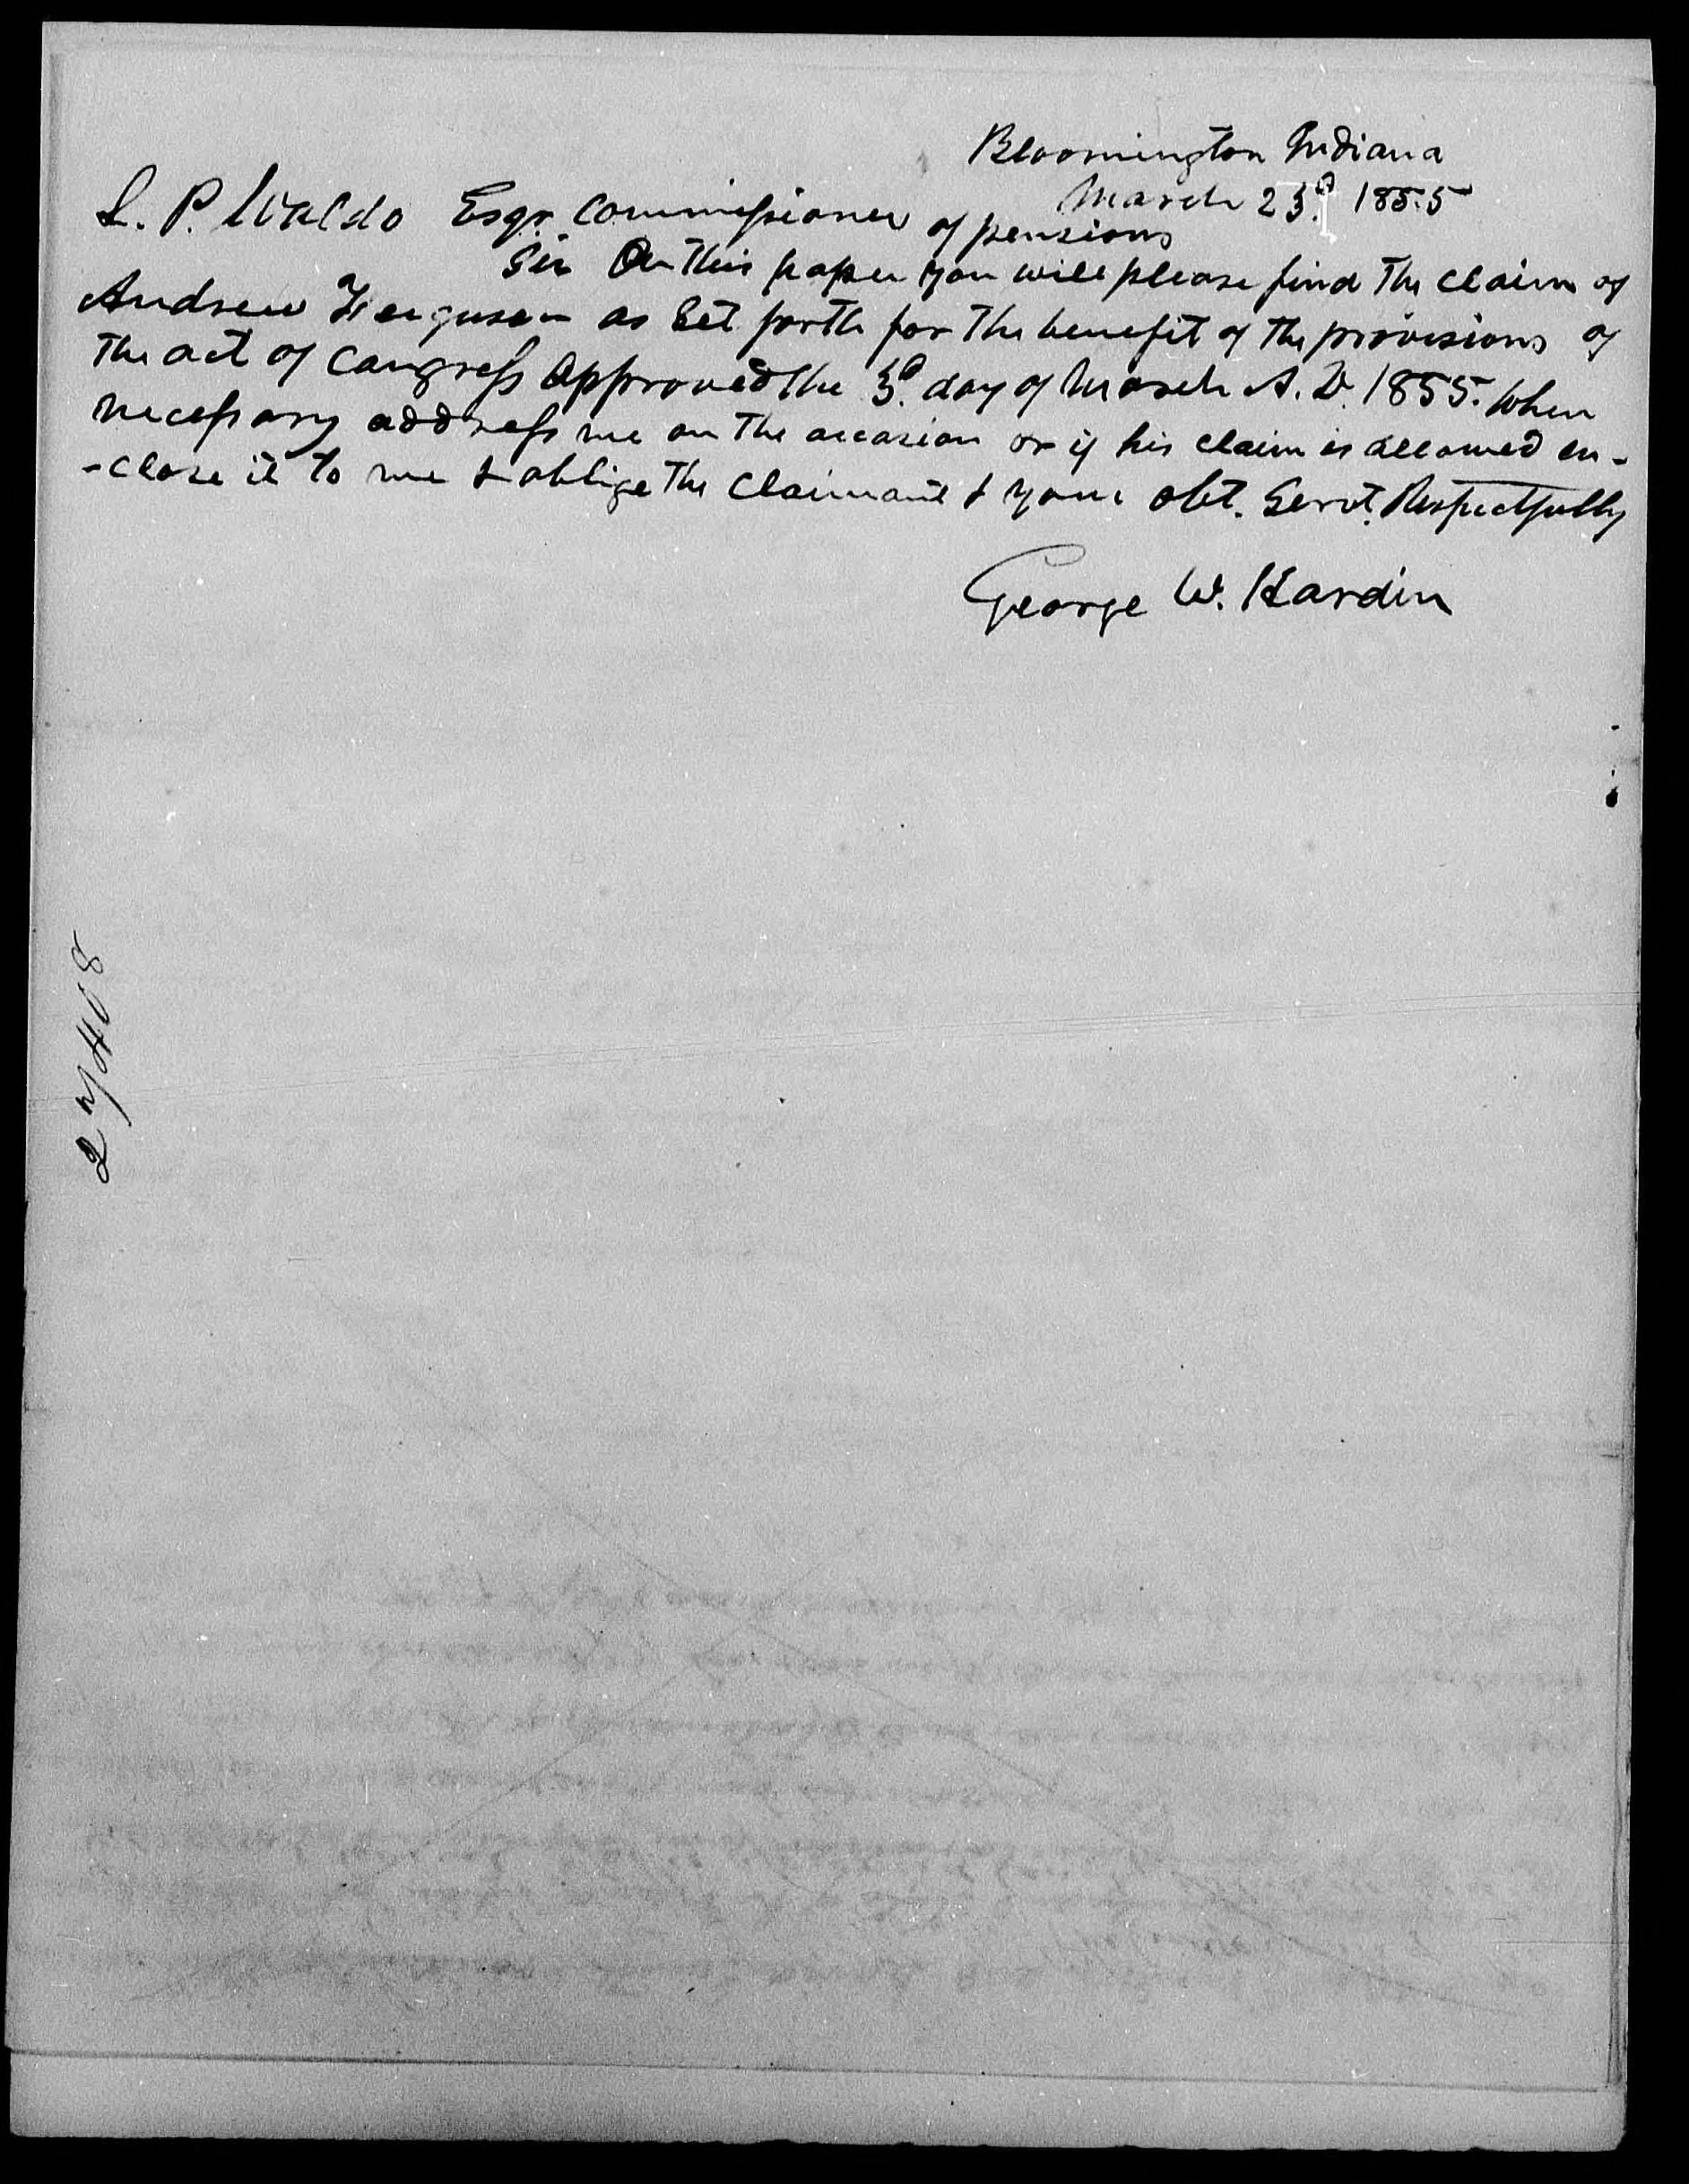 Bloomington Indiana
March 23d. 1855
L. P. Waldo Esqr. Commissioner of pensions
Sir On this paper you will please find the claim of
Andrew Ferguson as Set forth for the benefit of the provisions of
the act of Congress Approved the 3d. day of March A. D. 1855. When
necessary address me on the occasion or if his claim is allowed en-
-close it to me & oblige the Claimant & your obt. Servt. Respectfully
George W. Hardin
27408